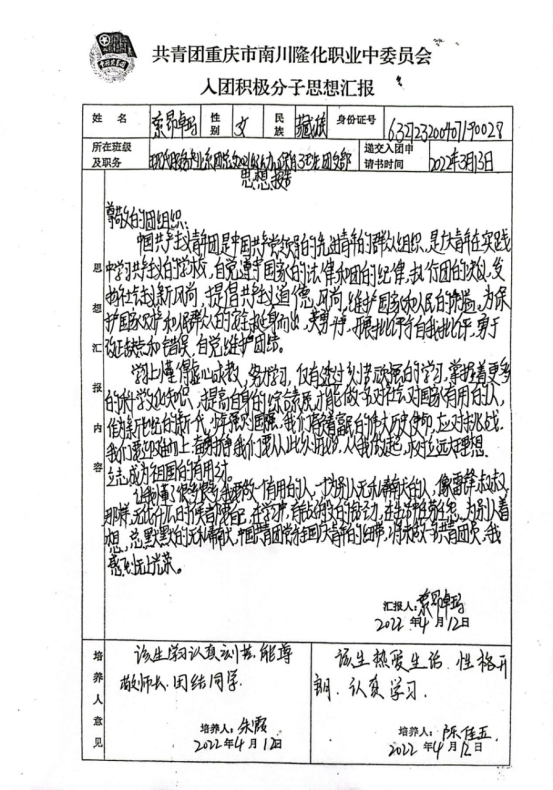 共青团重庆市南川隆化职业中委员会
入团积极分子思想汇报
姓名 索昂卓玛 性别 女 民族 藏族 身份证号 632723200407190028
所在班级及职务 递交入团申请书时间 2022年3月13日
思想汇报内容
思想报告
尊敬的团组织：
中国共产主义青年团是中国共产党领导的先进青年的群众组织，是广大青年在实践
中学习共产主义的学校，自觉遵守国家的法律和团的纪律，执行团的决议，发
扬社会主义新风尚，提倡共产主义道德风尚，维护国家和人民的利益，为保
护国家财产和人民群众的安全挺身而出，英勇斗争，开展批评与自我批评，勇于
改正缺点和错误，自觉维护团结。
学习上懂得虚心求教，努力学习，仅有透过刻苦的学习，掌握着更多
的科学文化知识，提高自身的综合素质，才能做名对社会对国家有用的人，
少年强则国强，我们背负着富民的伟大历史使命，应对挑战，
我们要从此刻，从我做起，树立远大理想
立志成为祖国的有用才。
让我懂了很多很多，我要做一个有用的人，一个为别人无私奉献的人，像雷锋叔叔
那样，无论什么时候都要记，在学习中，
想，总默默的无私奉献，中国共青团是全国广大青年的纽带，将来做一名共青团员，我
感到无上光荣。
汇报人：索昂卓玛
2022年4月12日
培养人意见
该生学习认真刻苦，能尊
敬师长，团结同学。
培养人：朱霞
2022年4月12日
该生热爱生活，性格开
朗，认真学习。
培养人：陈佳五
2022年4月12日